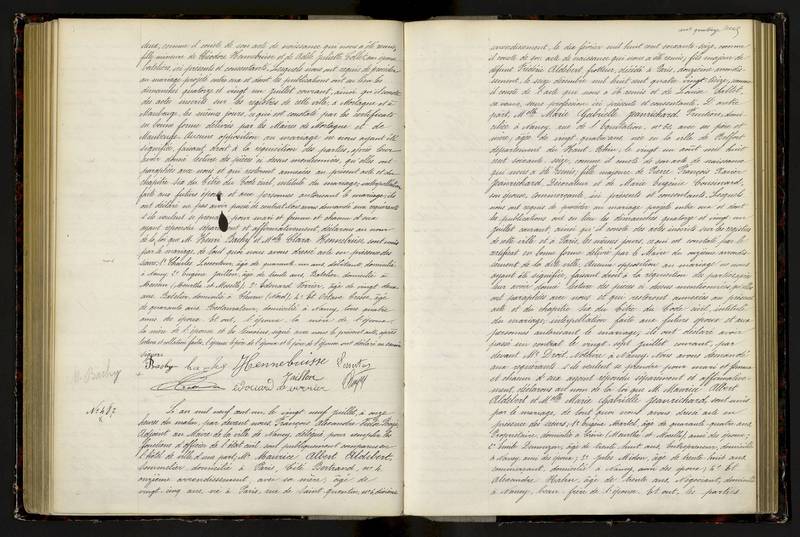 deux, comme il conste de son acte de naissance qui nous a été remis,
fille mineure de Théodore Hennebuisse et de Adèle Juliette Collet, son épouse
ici présents et consentants. Lesquels nous ont requis de procéder
au mariage projeté entre eux et dont les publications ont eu lieu les
dimanches quatorze et vingt un juillet courant, ainsi qu'il conste
des actes inscrits sur les registres de cette ville, à Mortagne et à
Maubeuge les mêmes jours, ce qui est constaté par les certificats
en bonne forme délivrés par les Maires de Mortagne et de
Maubeuge. Aucune opposition au mariage ne nous ayant été
signifiée, faisant droit à la réquisition des parties, après leur
avoir donné lecture des pièces ci dessus mentionnées, qu'elles ont
paraphées avec nous et qui resteront annexées au présent acte et du
chapitre six du titre du Code civil, intitulé du mariage, interpellation
faite aux futurs époux et aux personnes autorisant le mariage; ils
ont déclaré ne pas avoir passé de contrat. Nous avons demandé aux requérants
s'ils veulent se prendre pour mari et femme et chacun d'eux
ayant répondu séparément et affirmativement, déclarons au nom
de la loi que M. Henri Bachy et Melle Clara Hennebuisse sont unis
par le mariage, de tout quoi nous avons dressé acte en présence des
sieurs: 1° Charles
à Nancy; 2° Eugène Jaillon, âgé de trente ans, Batelier, domicilié à
(Meurthe et Moselle); 3° Edouard Verrier, âgé de vingt deux
ans, Batelier, domicilié à (Nord); 4° Et Octave
de quarante ans, domicilié à Nancy, tous quatre
amis des époux. Et ont, l'époux, la mère de l'époux,
la mère de l'épouse et les témoins signé avec nous le présent acte, après
lecture et interpellation faite, l'épouse le père de l'époux et le père de l'épouse ont déclaré ne savoir
signer.
Bachy Hennebuisse
Jaillon
edouard verrier
M. Bachy
N° 487
L'an mil neuf cent un, le vingt neuf juillet, à onze
heures du matin, par devant nous, François Alexandre
Adjoint au Maire de la ville de Nancy, délégué pour remplir les
fonctions d'officier de l'état civil, sont publiquement comparus en
l'hôtel de ville, d'une part, Mr. Maurice Albert Aldebert,
Sommelier, domicilié à Paris, Cité Bertrand, n° 4,
onzième arrondissement avec sa mère, âgé de
vingt cinq ans, né à Paris, rue de Saint Quentin, n° 4, dixième
arrondissement, le dix février mil huit cent soixante seize, comme
il conste de son acte de naissance qui nous a été remis, fils majeur de
défunt Frédéric Aldebert, frotteur, décédé à Paris, douzième arrondis-
sement, le seize décembre mil huit cent quatre vingt seize, comme
il conste de l'acte qui nous a été remis et de Louise
sa veuve, sans profession, ici présente et consentante. D'autre
part, Melle Marie Gabrielle Jeanrichard, domi-
ciliée à Nancy, rue de l'Equitation, et de avec ses père et
mère, âgée de vingt quatre ans, née en la ville de Belfort
département du Haut Rhin, le vingt un août mil huit
cent soixante seize, comme il conste de son acte de naissance
qui nous a été remis, fille majeure de Pierre François Xavier
Jeanrichard, et de Marie Eugénie
son épouse, ici présents et consentants. Lesquels
nous ont requis de procéder au mariage projeté entre eux et dont
les publications ont eu lieu les dimanches quatorze et vingt un
juillet courant, ainsi qu'il conste des actes inscrits sur les registres
de cette ville et à Paris, les mêmes jours, ce qui est constaté par le
certificat en bonne forme délivré par le Maire du onzième arrondis-
sement de la dite ville. Aucune opposition au mariage ne nous
ayant été signifiée, faisant droit à la réquisition des parties, après
leur avoir donné lecture des pièces ci dessus mentionnées, qu'elles
ont paraphées avec nous et qui resteront annexées au présent
acte et du chapitre six du titre du Code civil, intitulé
du mariage, interpellation faite aux futurs époux et aux
personnes autorisant le mariage; ils ont déclaré avoir
passé un contrat le vingt sept juillet courant, par
devant Me Droit, Notaire à Nancy. Nous avons demandé
aux requérants s'ils veulent se prendre pour mari et femme
et chacun d'eux ayant répondu séparément et affirmative-
ment, déclarons au nom de la loi que M. Maurice Albert
Aldebert et Melle Marie Gabrielle Jeanrichard, sont unis
par le mariage, de tout quoi nous avons dressé acte en
présence des sieurs: 1° Eugène Martel, âgé de quarante quatre ans,
Propriétaire, domicilié à (Meurthe et Moselle), ami des époux;
2° âgé de trente huit ans, Entrepreneur, domicilié
à Nancy, ami des époux; 3° Jules Midon, âgé de trente huit ans,
commerçant, domicilié à Nancy, ami des époux; 4° Et
Alexandre Hahn, âgé de trente ans, Négociant, domicilié
à Nancy, beau frère de l'épouse. Et ont, les parties